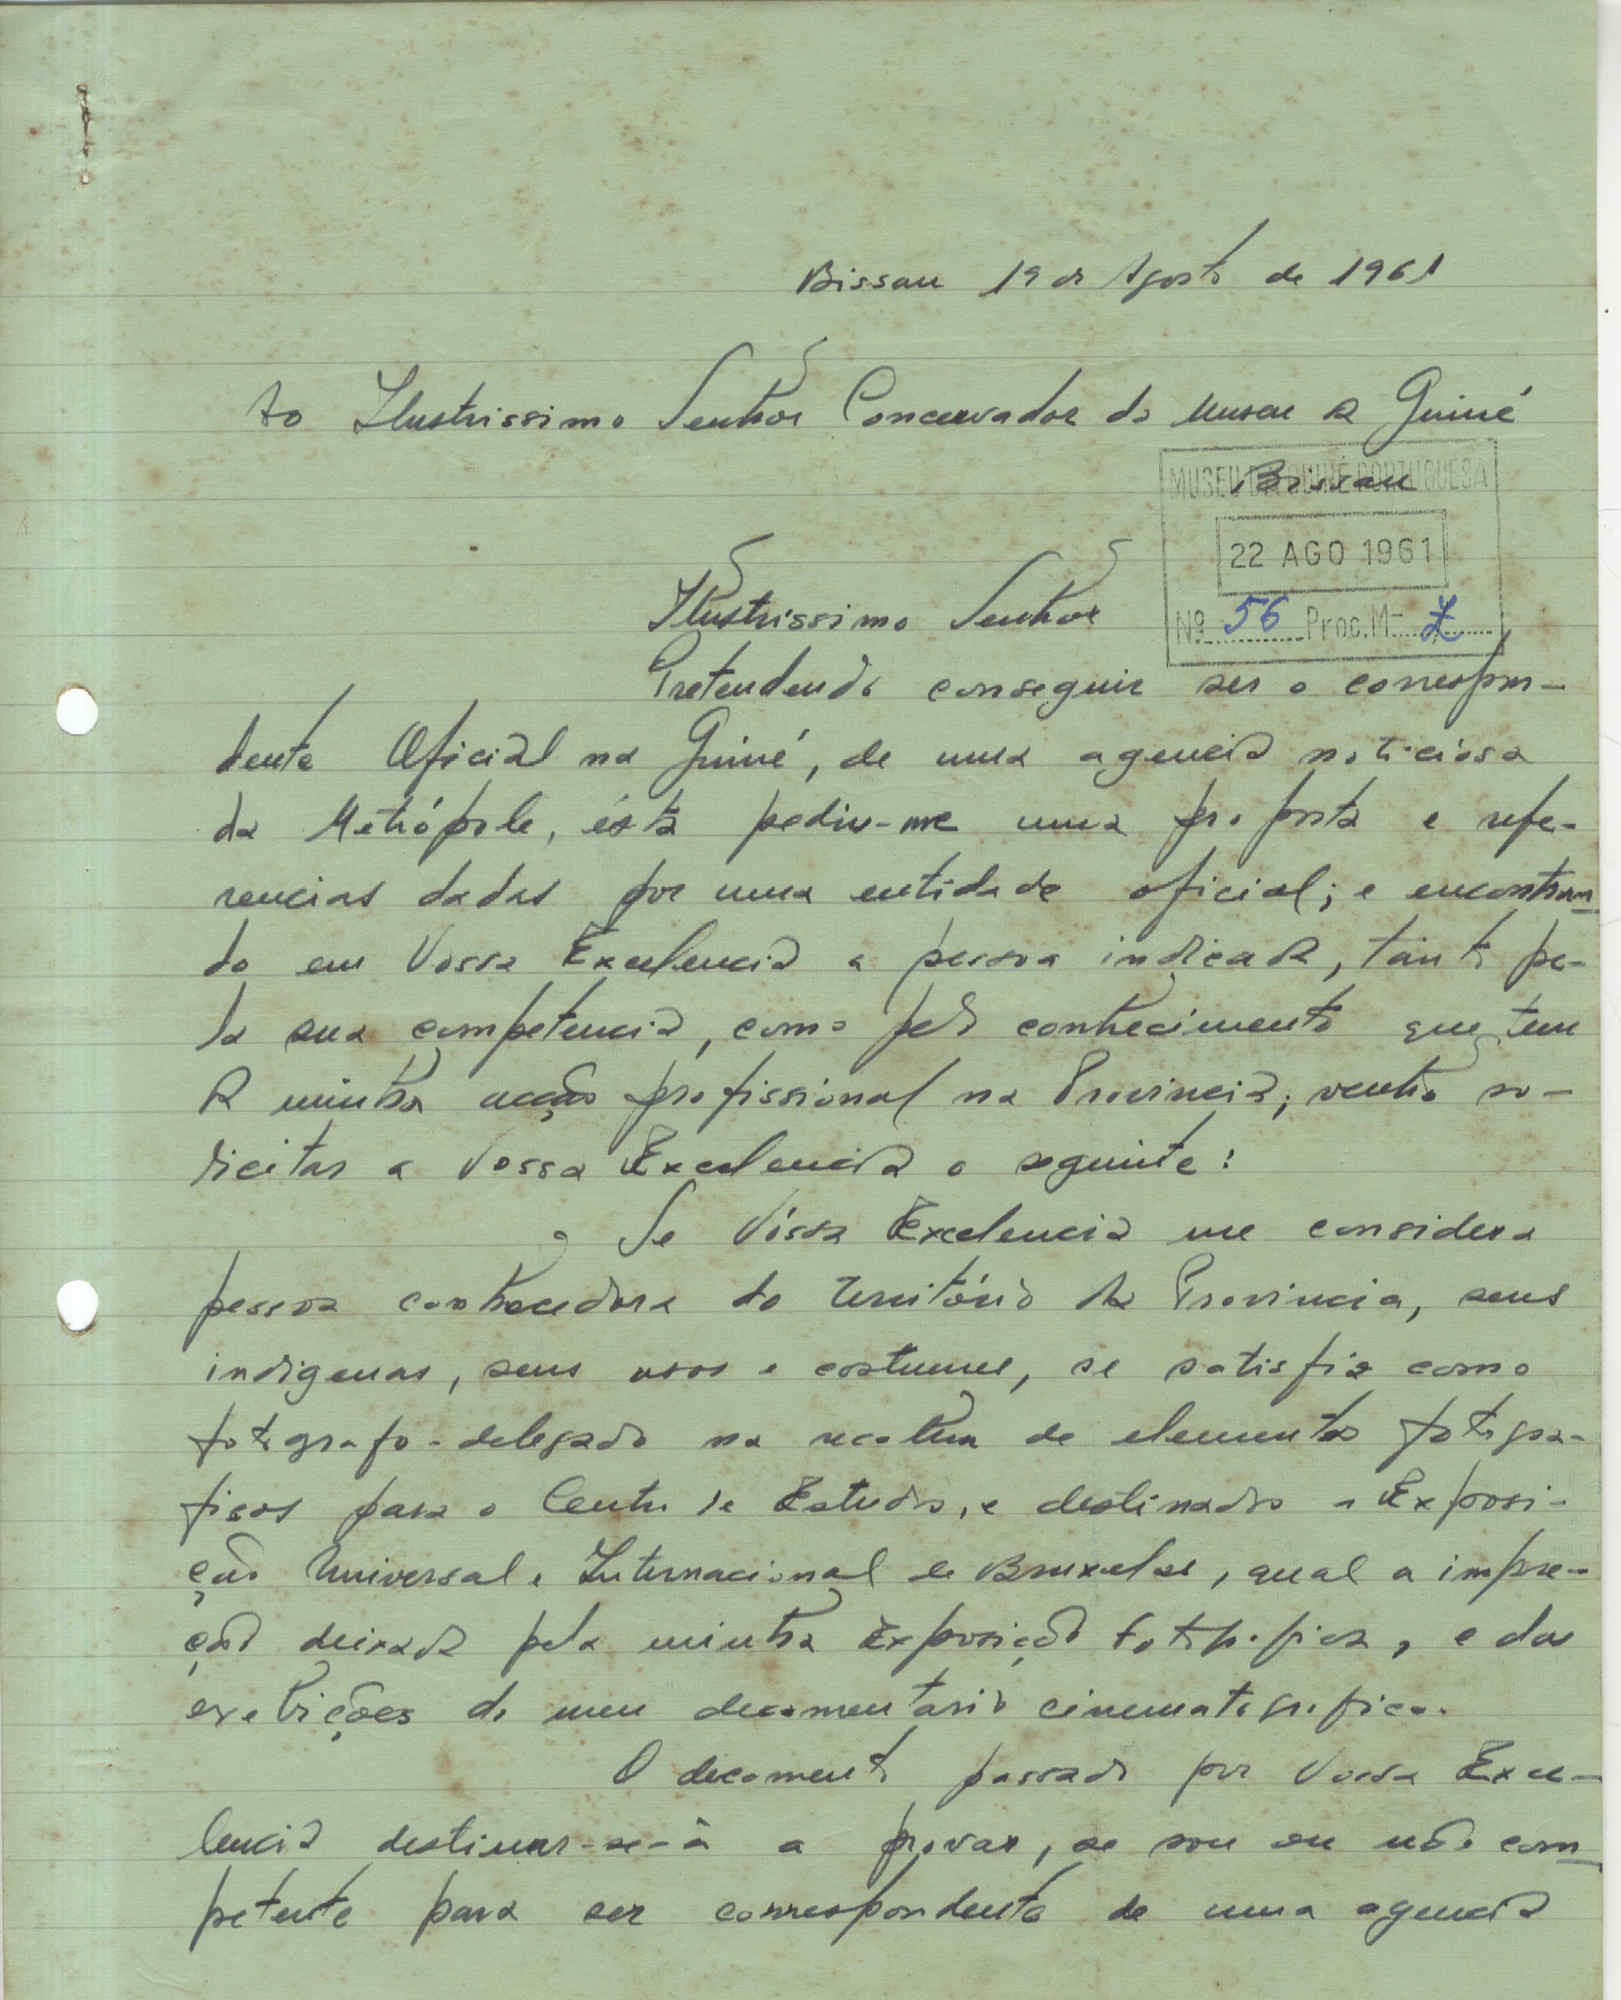 Bissau 19 de Agosto de 1961
Ao Ilustrissimo Senhor Concervador do Museu da Guiné
Bissau
MUSEU DA GUINÉ PORTUGUESA
22 AGO 1961
Nº 56 Proc. M- Z
Ilustrissimo Senhor
Pretendendo conseguir ser o correspon-
dente Oficial na Guiné, de uma agencia noticiosa
da Metrópole, ésta pediu-me uma proposta e refe-
rencias dadas por uma entidade oficial; e encontran-
do em Vossa Excelencia a pessoa indicada, tanto pe-
la sua competencia, como pelo conhecimento que tem
da minha acção profissional na Provincia, venho so-
licitar a Vossa Excelencia o seguinte:
Se Vóssa Excelencia me considera
pessoa conhecedora do território da Provincia, seus
indigenas, seus usos e costumes, se satisfiz como
fotografo-delegado na recolha de elementos fotogra-
ficos para o Centro de Estudos, e destinados a Exposi-
ção Universal e Internacional de Bruxelas, qual a impre-
ção deixada pela minha Exposição Fotografica, e das
exebições do meu documentario cinematografico.
O documento passado por Vossa Exce-
lencia destinar-se-à a provar, se sou ou não com-
petente para ser correspondente de uma agencia